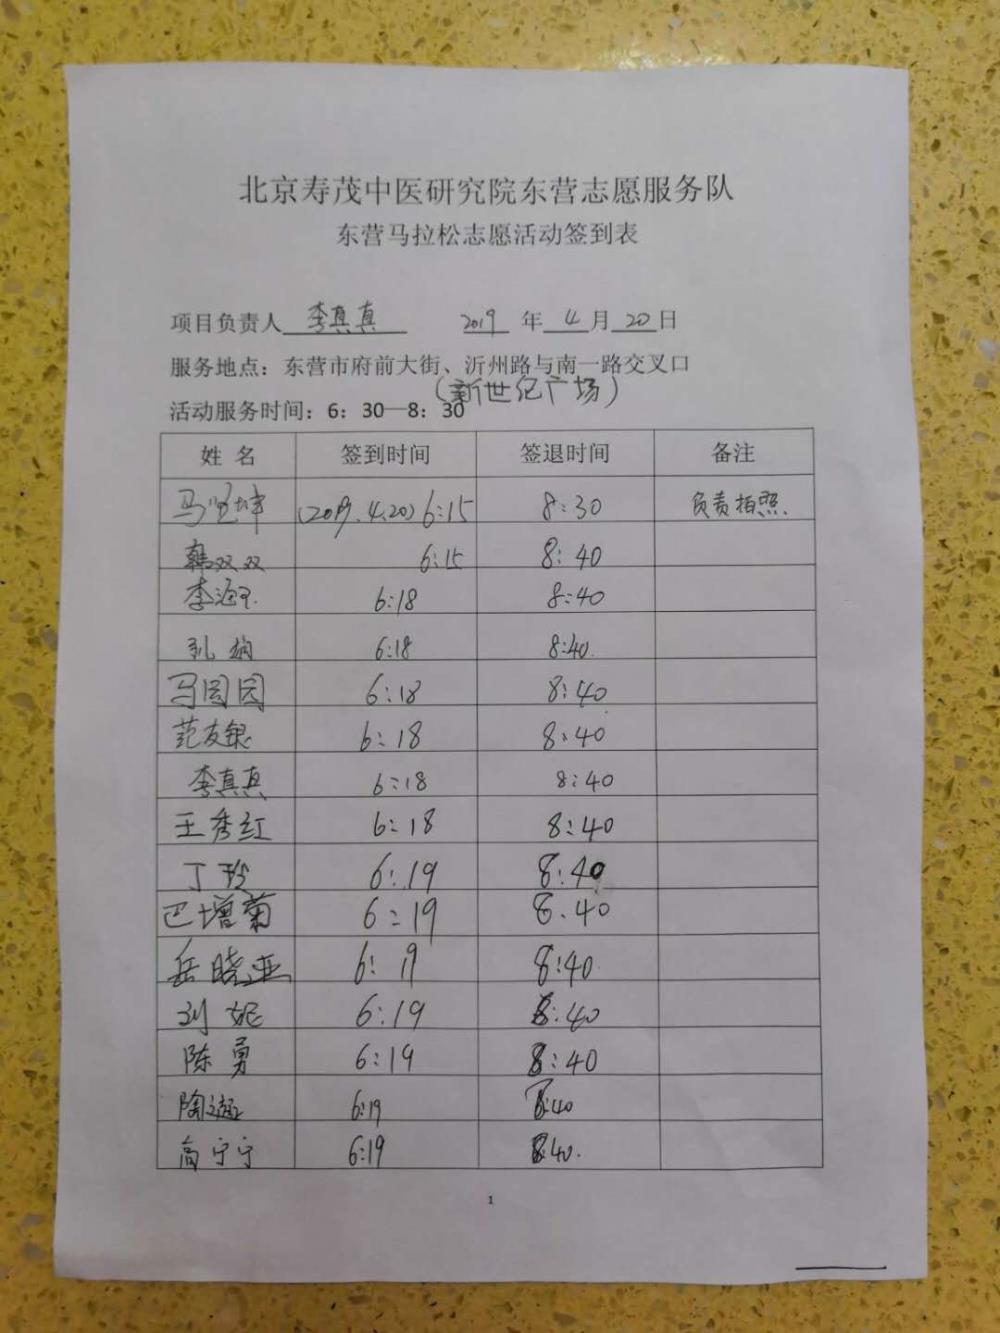 北京寿茂中医研究院东营志愿服务队
东营马拉松志愿活动签到表
项目负责人 李真真 2019 年 4 月 20 日
服务地点：东营市府前大街、沂州路与南一路交叉口
(新世纪广场)
活动服务时间：6：30—8：30
姓 名 签到时间 签退时间 备注
马 (2019.4.20) 6:15 8:30 负责拍照.
韩双双 6:15 8:40
李海 6:18 8:40
孔 6:18 8:40.
马园园 6:18 8:40
范友银 6:18 8:40
李真真 6:18 8:40
王秀红 6:18 8:40
丁玲 6:19 8:40
巴增菊 6:19 8.40
岳晓亚 6:19 8:40
刘妮 6:19 8:40
陈勇 6:19 8:40
陶 6:19 8:40
高宁宁 6:19 8:40.
1